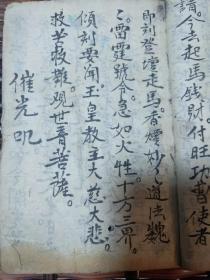 請。今去起馬錢財。付旺功曹使者
即刻登壇走馬。香煙妙々道法巍
々。雷霆號令。急如火牲。十方三界。
傾刻要聞。玉皇教主大慈大悲。
救苦救难。观世音菩薩。
催光咒